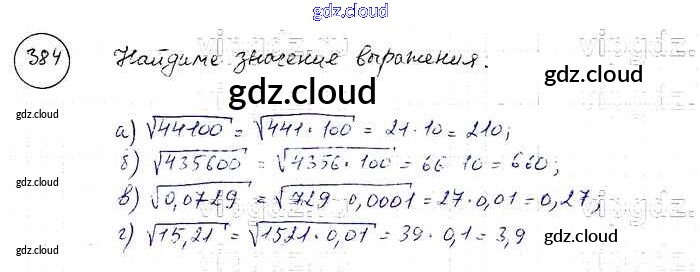 gdz.cloud
384 Найдите значение выражения.
gdz.cloud
gdz.cloud
gdz.cloud
а) √44100 = √441·100 = 21·10 = 210;
б) √435600 = √4356·100 = 66·10 = 660;
gdz.cloud
в) √0,0729 = √729·0,0001 = 27·0,01 = 0,27;
г) √15,21 = √1521·0,01 = 39·0,1 = 3,9
gdz.cloud
gdz.cloud